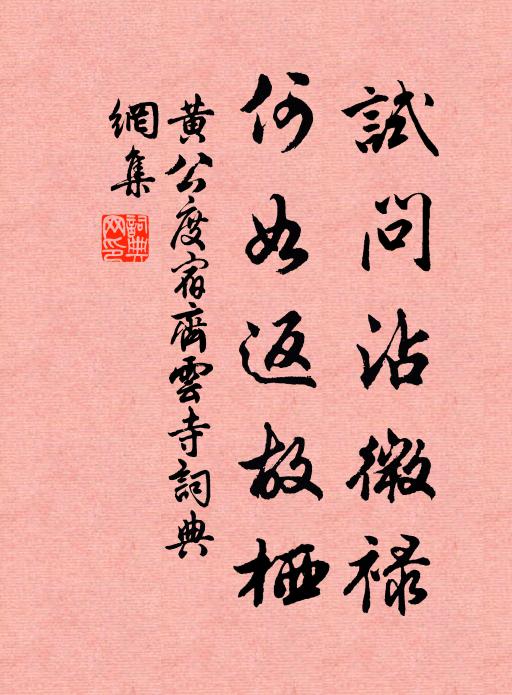 試問沾微祿
何如返故栖
黄公度宿齊雲寺詞典
網集
詞典網印